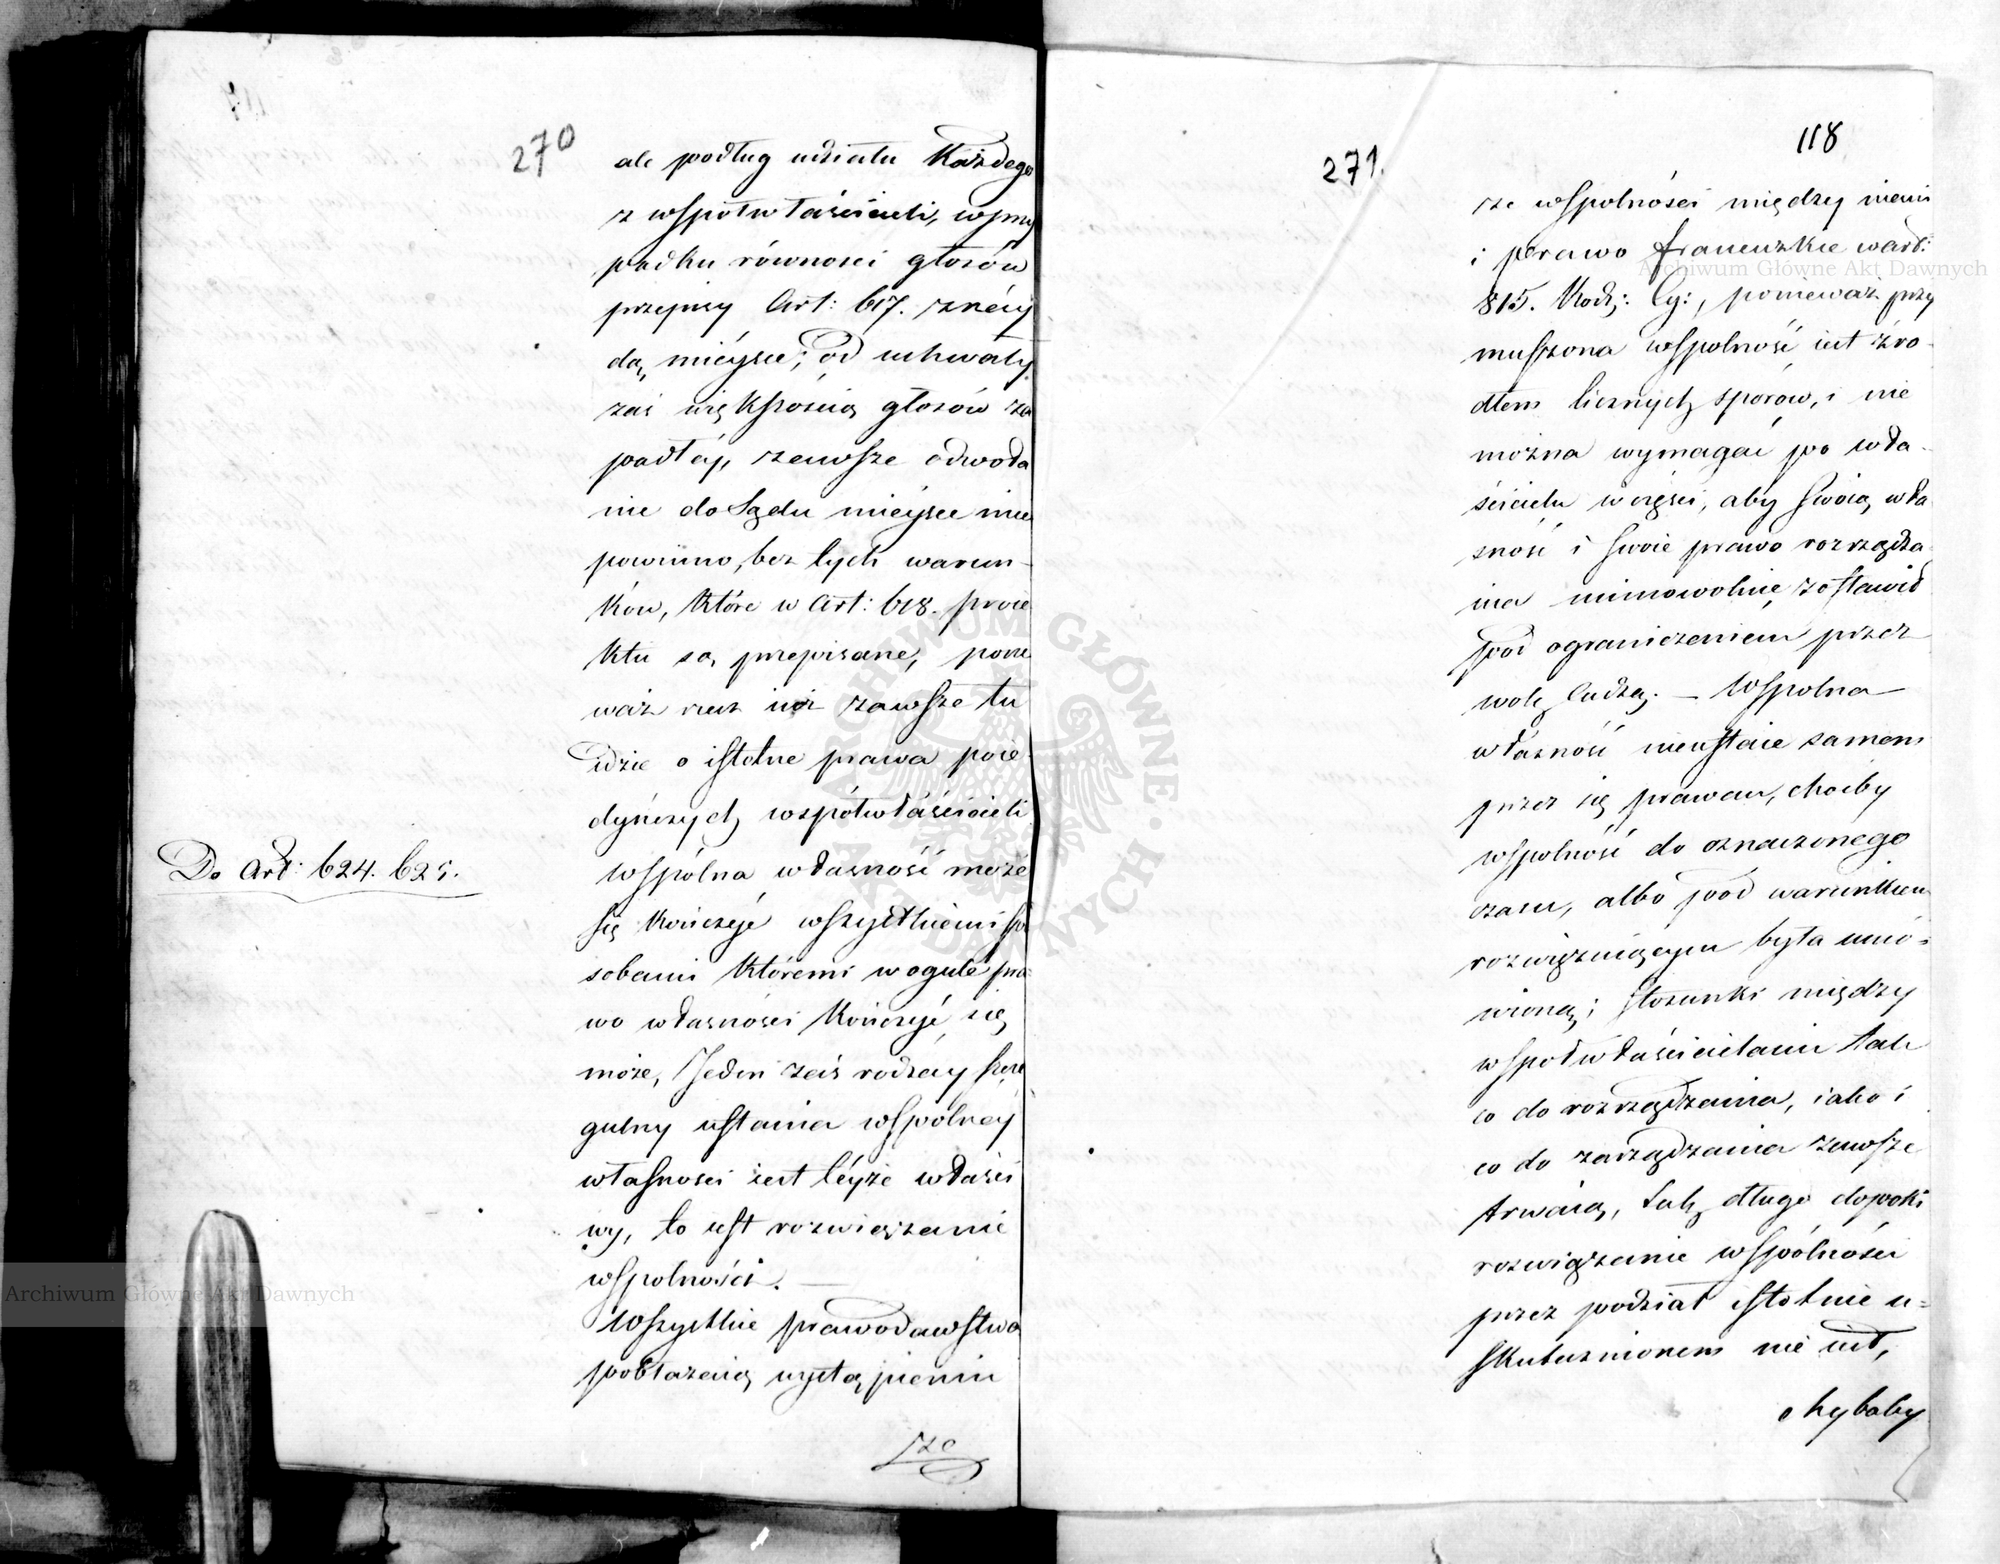 270
ale podług udziału Każdego
z wspołwłaścicieli, w przy
padku równosci głosów
przepisy Art: 617. znéy
dą mieysce; od uchwały
zaś więkſzością głosów za
padłéj, zawſze odwoła
nie do Sądu mieysce mieć
powinno, bez tych warun-
ków, które w Art: 618. proie
ktu są przepisane, ponie
waż rzecz iuż zawſze tu
idzie o iſtotne prawa poie
dyńczych wspótwłaścicieli
Do Art: 624. 625.
Wſpólna własność może
ſię kończyć wſzyſtkiemi ſpo
sobami któremi w ogule pra
wo własności kończyć się
może, Jeden zaś rodzay ſzcze
gulny uſtania wſpólnéy
właſnosci iest téyże właści
wy, to ieſt rozwiązanie
wſpolności. —
Wſzyſtkie prawodawſtwa
pobłażaią wyſtąpieniu
ze
118
271.
ze wſpolności między niemi
i prawo francuzkie w art:
815. Kod: Cy:, ponieważ przy
muſzona wſpolność iest źró-
dłem licznych sporów, i nie
można wymagać po wła-
ścicielu części, aby ſwoią wła
sność i ſwoie prawo rozrządza
nia mimowolnie zoſtawił
pod ograniczeniem przez
wolę cudzą. — Wſpolna
własność nieuſtaie samem
przez się prawem, choćby
wſpolność do oznaczonego
czasu, albo pod warunkiem
rozwięzuiącym była umó-
wioną; ſtosunki między
wſpołwłaścicielami tak
co do rozrządzania, iako i
co do zarządzania zawſze
trwaią, tak długo dopoki
rozwiązanie wſpólności
przez podział iſtotnie u-
ſkutecznionem nie ieſt,
chybaby
Archiwum Główne Akt Dawnych
Archiwum Główne Akt Dawnych
ARCHIWUM GŁÓWNE AKT DAWNYCH